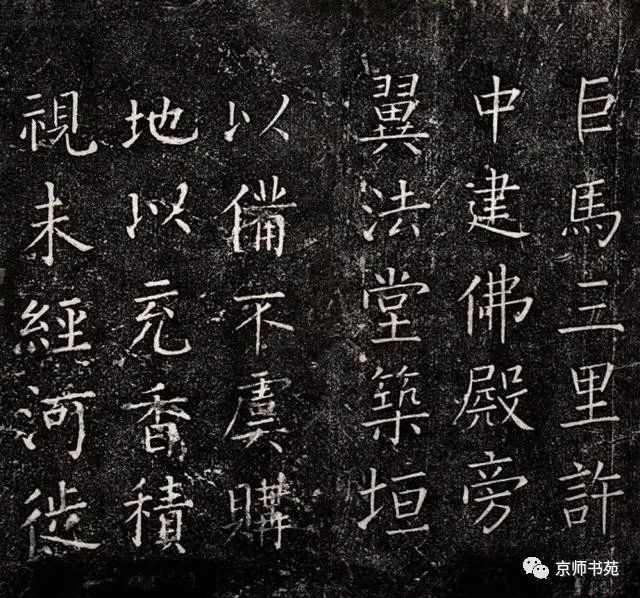 巨馬三里許
中建佛殿旁
翼法堂築垣
以備不虞購
地以充香積
視未經河徙
京师书苑